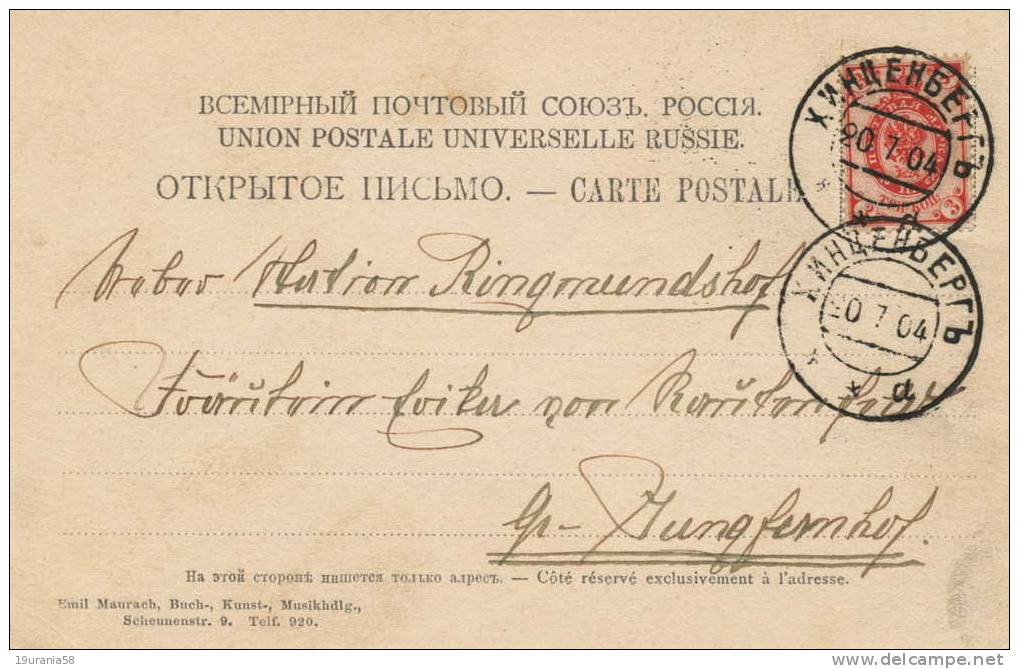 ВСЕМІРНЫЙ ПОЧТОВЫЙ СОЮЗЪ. РОССІЯ.
UNION POSTALE UNIVERSELLE RUSSIE.
ОТКРЫТОЕ ПИСЬМО. — CARTE POSTALE
ХИНЦЕНБЕРГЪ
20 7 04
d
3 3
ХИНЦЕНБЕРГЪ
20 7 04
d
Ueber Station Ringmundshof
Fräulein von
Gr- Jungfernhof.
На этой сторонѣ пишется только адресъ. — Côté réservé exclusivement à l'adresse.
Emil Maurach, Buch-, Kunst-, Musikhdlg.,
Scheunenstr. 9. Telf. 920.
19urania58
www.delcampe.net